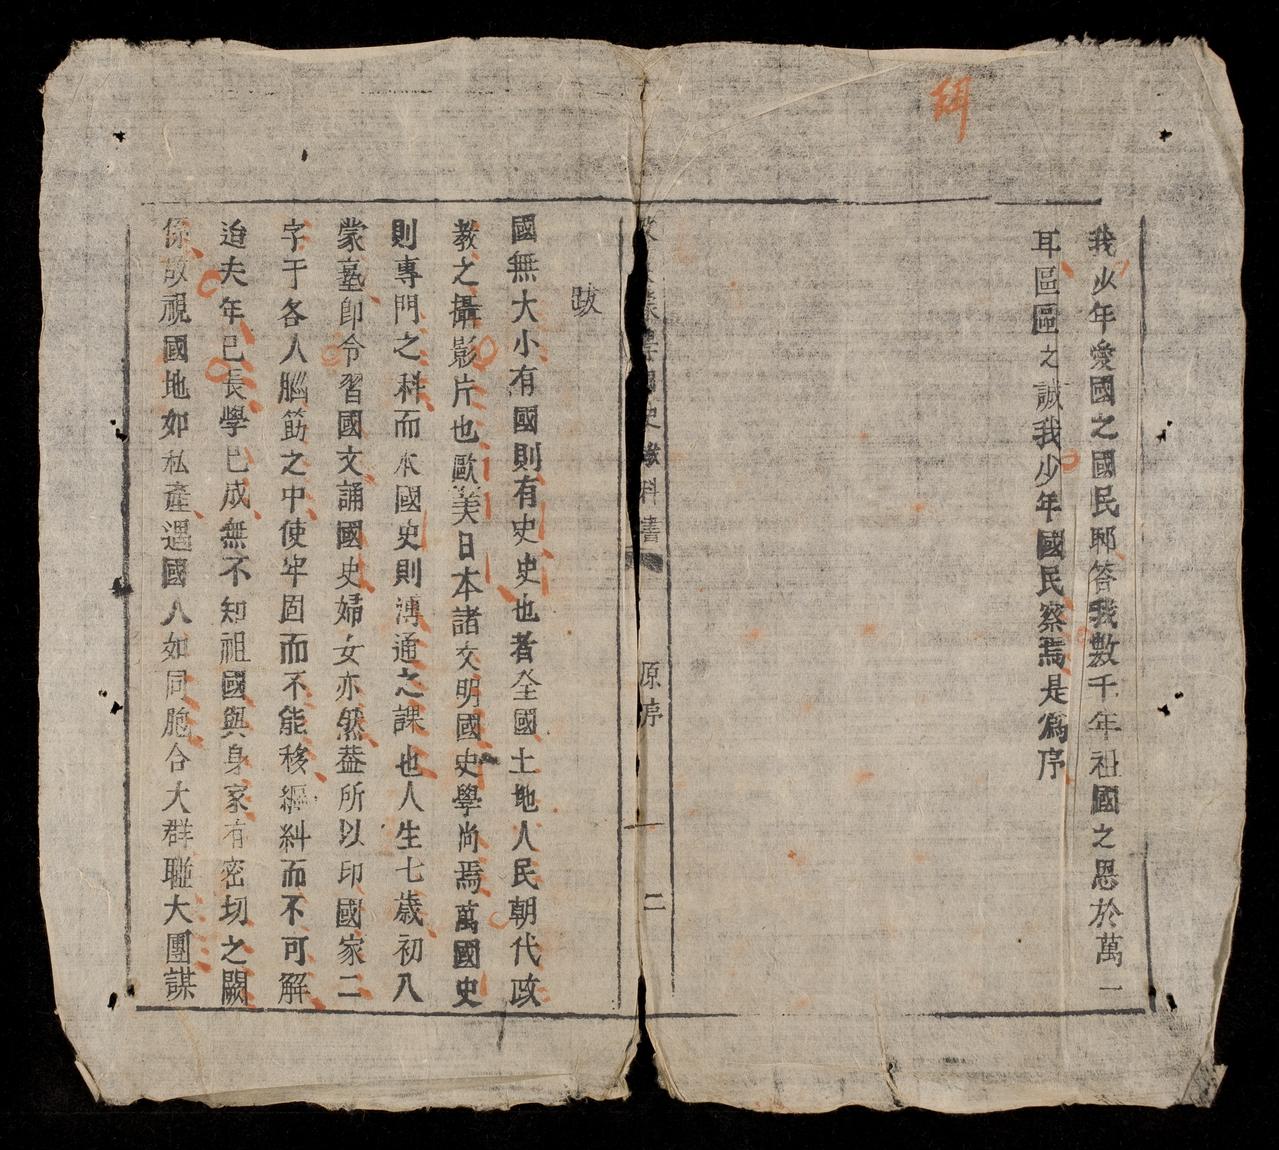 緝
我少年愛國之國民耶答我數千年祖國之恩於萬一
耳區區之誠我少年國民察焉是爲序
國史教科書
原序
二
跋
國無大小有國則有史史也者全國土地人民朝代政
教之攝影片也歐美日本諸文明國史學尚焉萬國史
則專門之科而本國史則溥通之課也人生七歲初入
蒙塾卽令習國文誦國史婦女亦然葢所以印國家二
字于各人腦筋之中使牢固而不能移糾而不可解
迨夫年已長學已成無不知祖國與身家有密切之關
係故視國地如私產遇國人如同胞合大群聯大團謀